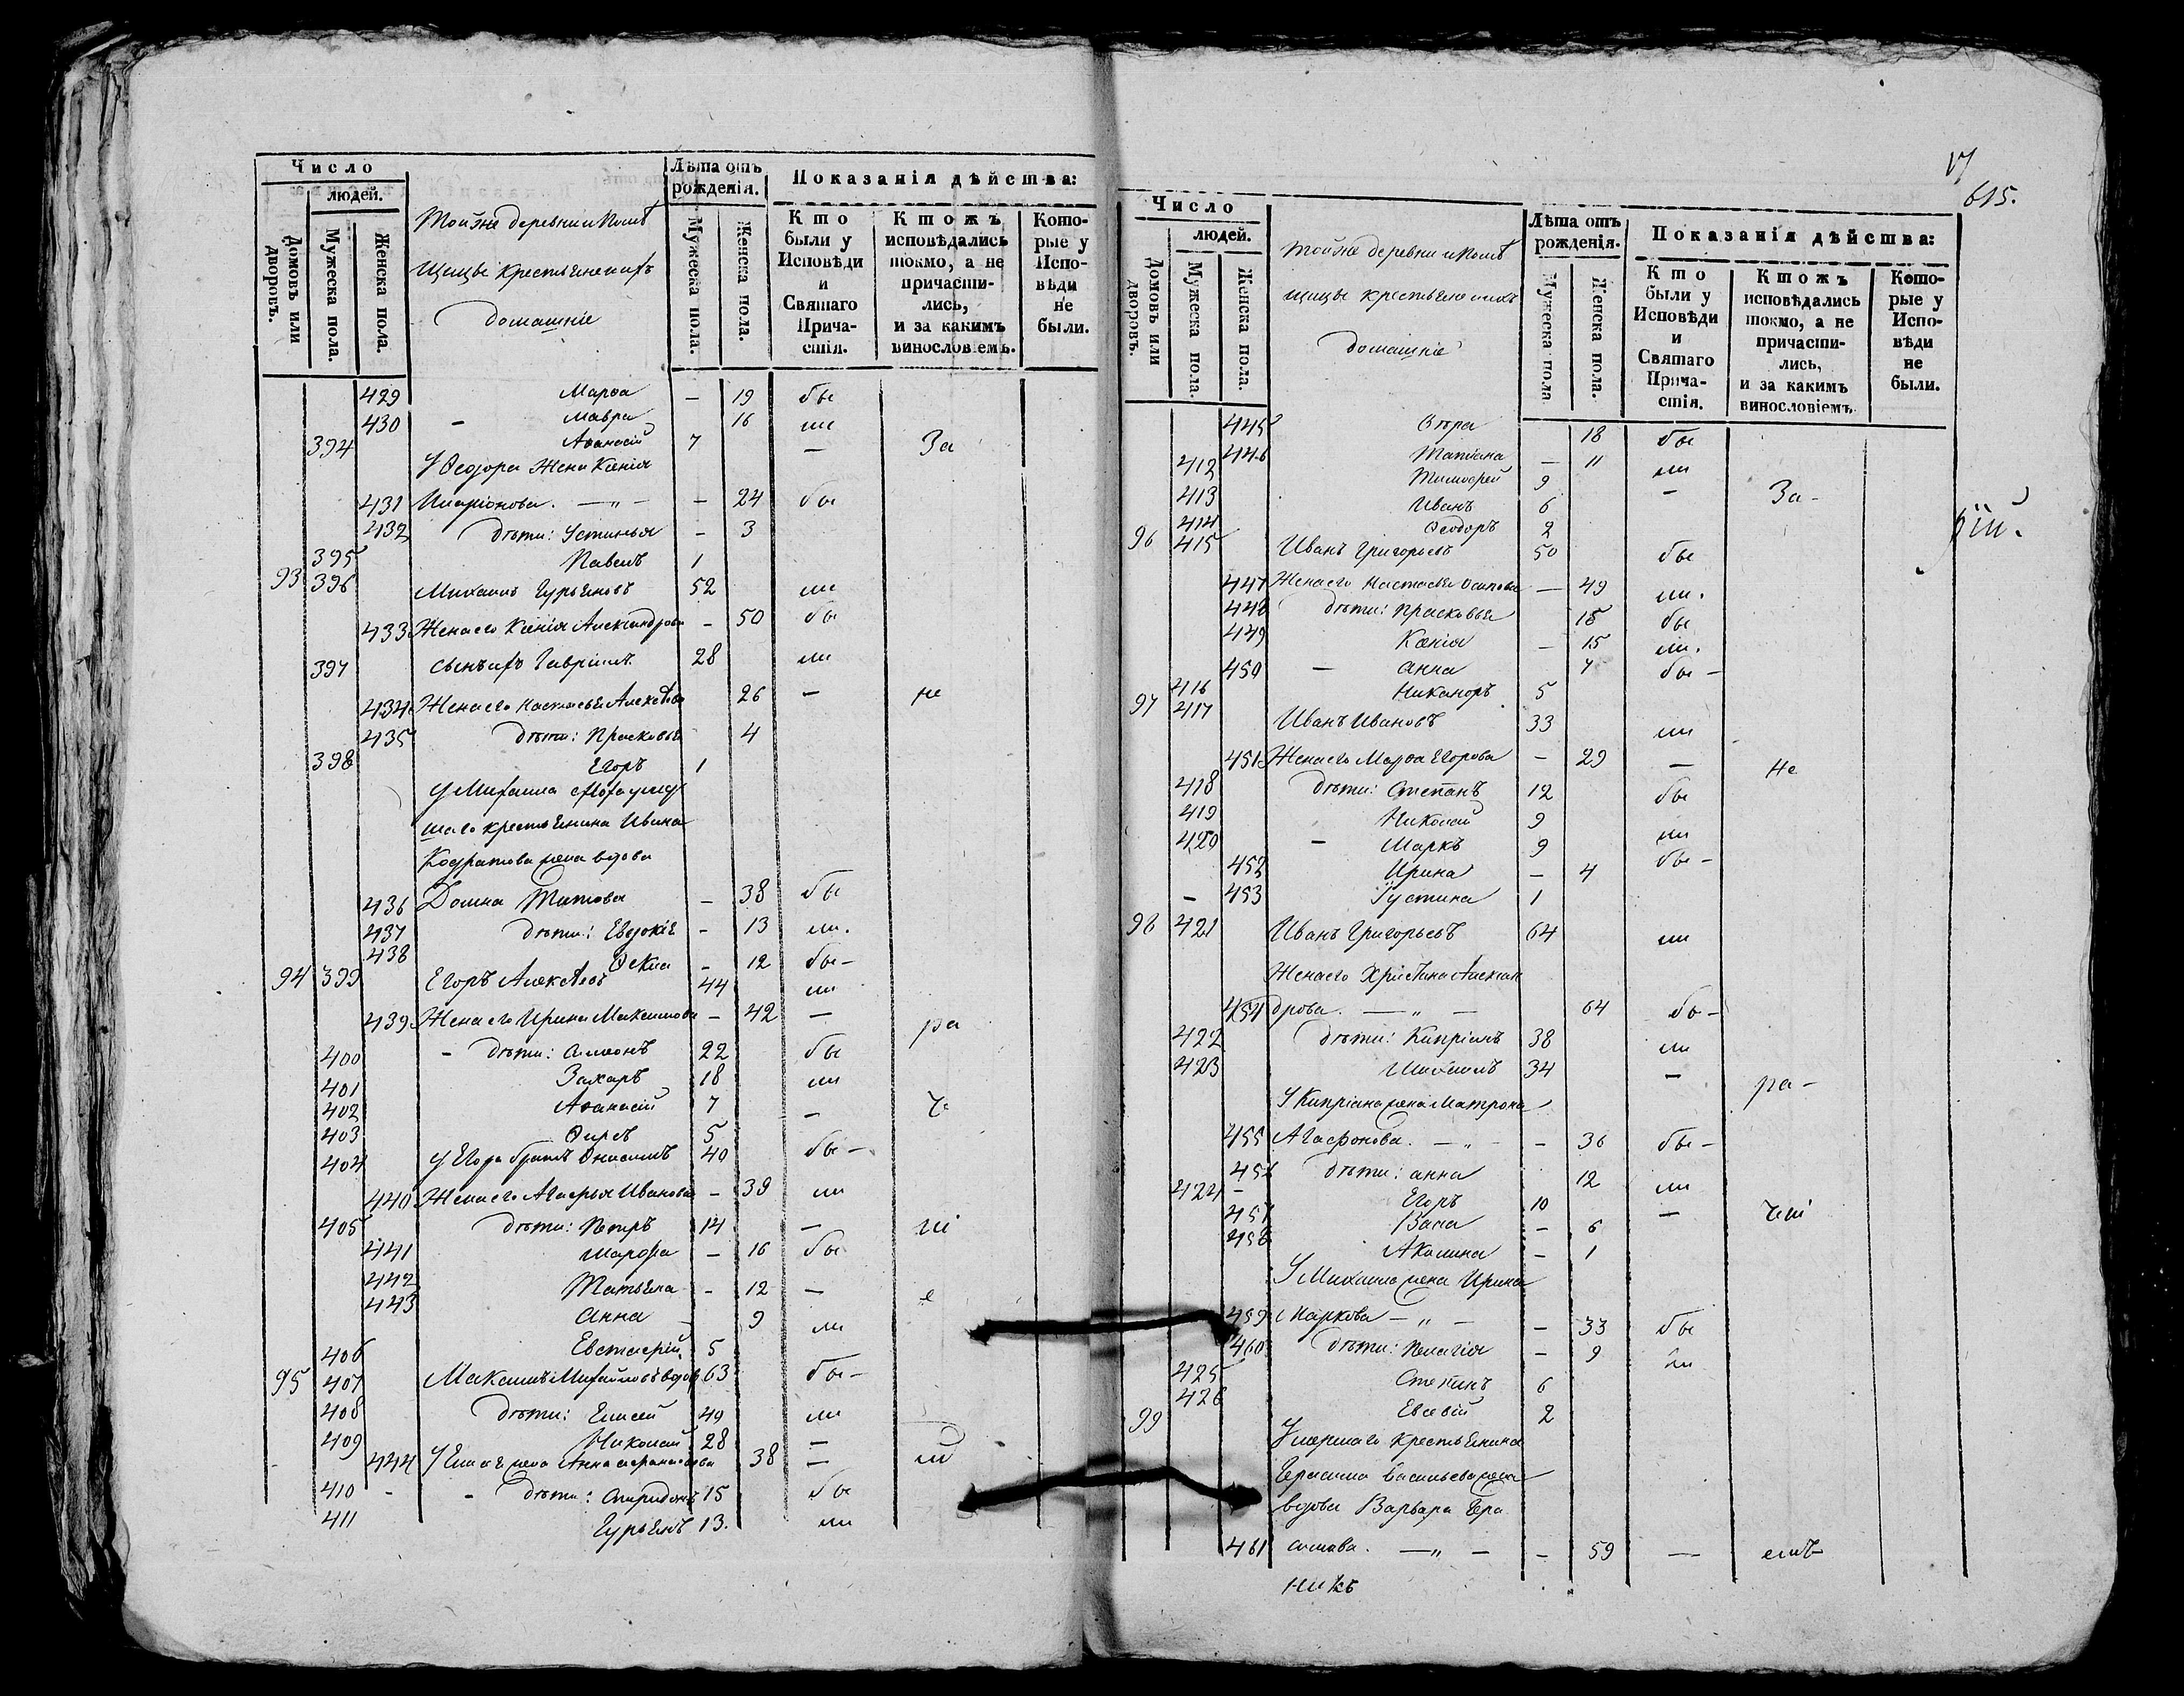 Число
людей.
Домовъ или дворовъ.
Мужеска пола.
Женска пола.
Тойже деревни и Помѣ
щицы крестьяне и ихъ
домашніе
Лѣта отъ рожденія.
Мужеска пола.
Женска пола.
Показанія дѣйства:
Кто были у Исповѣди и Святаго Причастія.
Ктожъ исповѣдались токмо, а не причастились, и за какимъ винословіемъ.
Которые у Исповѣди не были.
429 Марѳа — 19 бы
430 - Мавра 16 ли
394 Аѳанасій 7 — За
У Ѳедора жена Ксенія
431 Иларіонова. — „ — - 24 бы
432 дѣти: Устинья - 3
395 Павелъ 1
93 396 Михаилъ Гурьяновъ 52 ли
433 Жена его Ксенія Александрова - 50 бы
397 сынъ ихъ Гавріилъ 28 ли
434 Жена его Настасья Алексѣева 26 — не
435 дѣти: Прасковья 4
398 Егоръ 1
У Михаила
шаго крестьянина Ивана
Кодратова жена вдова
436 Домна Титова - 38 бы
437 дѣти: Евдокія - 13 ли.
438 Ѳекла - 12 бы-
94 399 Егоръ Алексѣевъ 44 ли
439 Жена его Ирина Максимова - 42 — ра
400 - дѣти: Симеонъ 22 бы
401 Захаръ 18 ли
402 Аѳанасій 7 — че
403 Ѳирсъ 5
404 У Егора братъ Онисимъ 40 бы-
440 Жена его Агафья Иванова - 39 ли
405 дѣти: Петръ 14 — ні
441 Марѳа - 16 бы
442 Татьяна - 12 — е
443 Анна 9 ли
406 Евстафій 5
95 407 Максимъ Михайловъ вдовъ 63 бы-
408 дѣти: Елисей 40 ли
409 Николай 28 —
444 У Елисея жена Анна 38 —
410 - дѣти: Спиридонъ 15 бы
411 Гурьянъ 13. ли
17
615.
Число
людей.
Домовъ или дворовъ.
Мужеска пола.
Женска пола.
Тойже деревни и Помѣ
щицы крестьяне и ихъ
домашніе
Лѣта отъ рожденія.
Мужеска пола
Женска пола.
Показанія дѣйства:
Кто были у Исповѣди и Святаго Причастія.
Ктожъ исповѣдались токмо, а не причастились, и за какимъ винословіемъ.
Которые у Исповѣди не были.
445 Вѣра 18 бы
446 Татіана — 11 ли
412 Тимофей 9 — За-
413 Иванъ 6
414 Ѳеодоръ 2
96 415 Иванъ Григорьевъ 50 бы
447 Жена его Настасья Осипова — 49 ли.
448 дѣти: Прасковья 18 бы
449 Ксенія — 15 ли.
450 — Анна 7 бы-
416 Никаноръ 5
97 417 Иванъ Ивановъ 33 ли
451 Жена его Марѳа Егорова - 29 — не
418 дѣти: Степанъ 12 бы
419 Николай 9 ли
420 - Маркъ 9 бы-
452 Ирина - 4
- 453 Іустина 1
98 421 Иванъ Григорьевъ 64 ли
Жена его Христина Алексан
454 дрова. — „ — 64 бы-
422 дѣти: Кипріанъ 38 ли
423 Михаилъ 34 — ра-
У Кипріана жена Матрона
455 Агафонова. — „ - - 36 бы-
456 дѣти: Анна 12 ли
424 - Егоръ 10 — чені
457 Васса - 6
458 Акилина - 1
У Михаила жена Ирина
459 Маркова — „ — - 33 бы
460 дѣти: Пелагія - 9 ли
425 Степанъ 6
426 Евсевій 2
99 Умершаго крестьянина
Герасима Васильева жена
вдова Варвара Гера
461 симова. — „ — - 59 — емъ
никъ